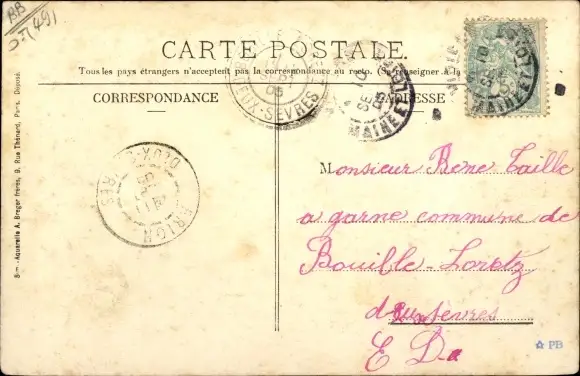 BB
D-T(49)
CARTE POSTALE
Tous les pays étrangers n'acceptent pas la correspondance au recto. (Se renseigner à la
CORRESPONDANCE
ADRESSE
DEUX-SEVRES
MAINE E
05
Monsieur Bene Taille
a garne commune de
Bouille-Loretz
deuxsèvres
E Da
Aquarelle A. Breger frères, 9, Rue Thénard, Paris. Déposé.
PB